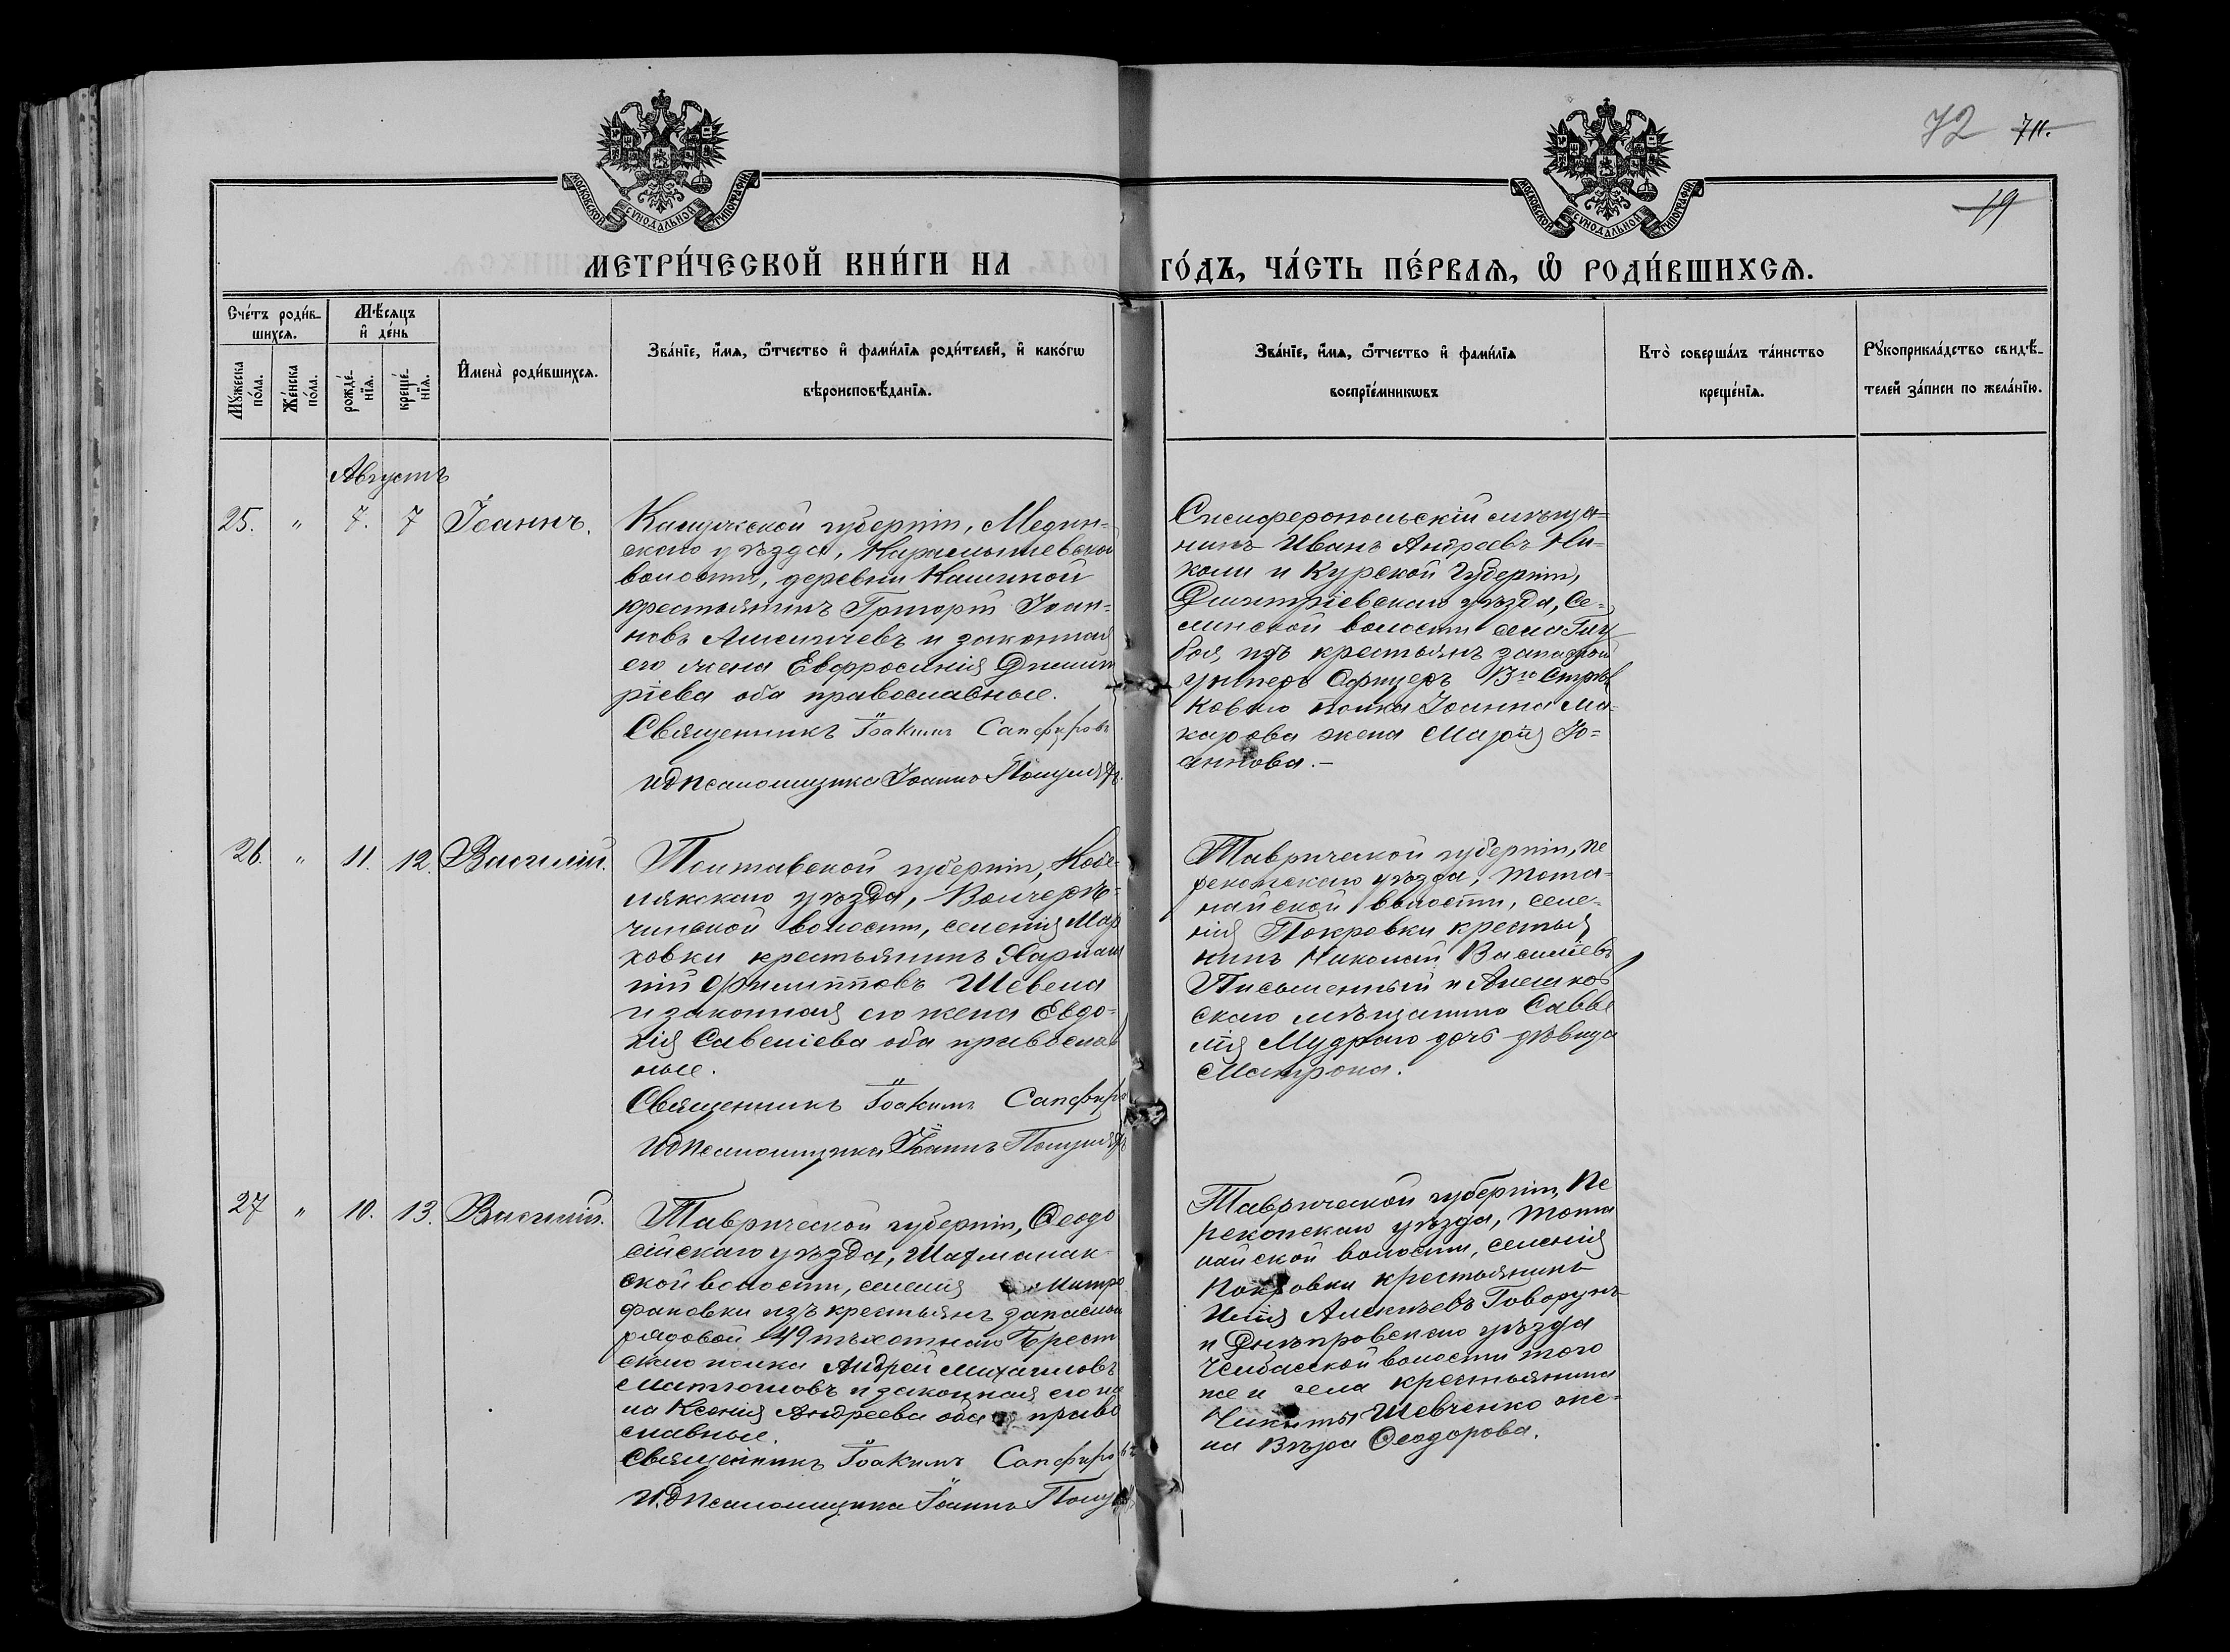 72 71.
19
МОСКОВСКОЙ СУНОДАЛЬНОЙ ТИПОГРАФІИ
МОСКОВСКОЙ СУНОДАЛЬНОЙ ТИПОГРАФІИ
МЕТРИ́ЧЕСКОЙ КНИ́ГИ НА
ГО́ДЪ, ЧА́СТЬ ПЕ́РВАѦ, Ѿ РОДИ́ВШИХСѦ.
Сче́тъ роди́в-
шихсѧ.
Мꙋжеска по́ла.
Же́нска по́ла.
Мѣ́сѧцъ
и҆ де́нь
рожде́-нїѧ.
креще́-нїѧ.
И҆мена̀ роди́вшихсѧ.
Зва́нїе, и҆́мѧ, ѻ҆́тчество и҆ фами́лїѧ роди́телей, и҆ како́гѡ
вѣроисповѣ́данїѧ.
Зва́нїе, и҆́мѧ, ѻ҆́тчество и҆ фами́лїѧ
воспрїе́мникѡвъ
Кто̀ соверша́лъ та́инство
креще́нїѧ.
Рꙋкоприкла́дство свидѣ́-
телей за́писи по жела́нїю.
Августъ
25. " 7. 7 Іоаннъ.
Калужской губерніи, Медын-
скаго уѣзда, Карамышевской
волости, деревни Кашиной
крестьянинъ Григорій Іоан-
новъ Алексичевъ и законная
его жена Евфросинія Димит
ріева оба православные.
Священникъ Іоакимъ Сапфировъ
ИдПсаломщика Іоаннъ
Симферопольскій мѣща=
нинъ Иванъ Андреевъ Ни-
коли и Курской Губерніи,
Дмитріевскаго уѣзда, Се-
линской волости села Глу
бая, изъ крестьянъ запасной
унтеръ Офицеръ 13го Стрѣл
коваго полка Іоанна Ма-
карова жена Марія Іо=
аннова.–
26. " 11. 12. Василій.
Полтавской губерніи, Кобе-
лякскаго уѣзда,
волости, селенія Мар
ковки крестьянинъ Харлам
пій Филипповъ Шевела
и законная его жена Евдо-
кія Савеліева оба православ
ные.
Священникъ Іоакимъ Сапфиро
ИдПсаломщика Іоаннъ
Таврической губерніи, Пе
рекопскаго уѣзда, Тота-
найской волости, селе-
нія Покровки крестья
нинъ Николай Василіевъ
Письменный и Алешков
скаго мѣщанина Савве
лія Мудраго дочь дѣвица
Матрона.
27 " 10. 13. Василій.
Таврической губерніи, Ѳеодо
сійскаго уѣзда,
ской волости, селенія Митро
фановки изъ крестьянъ запасный
рядовой 49 пѣхотнаго Брест
скаго полка Андрей Михаиловъ
и законная его же
на Ксенія Андреева оба право
славные.
Священникъ Іоакимъ Сапфировъ
И.дПсаломщика Іоаннъ
Таврической губерніи, Пе
рекопскаго уѣзда, Тота
найской волости, селенія
Покровки крестьянинъ
Илія Алексѣевъ Говорунъ
и Днѣпровскаго уѣзда
Челбасской волости того
же и села крестьянина
Никиты Шевченко же-
на Вѣра Ѳеодорова.